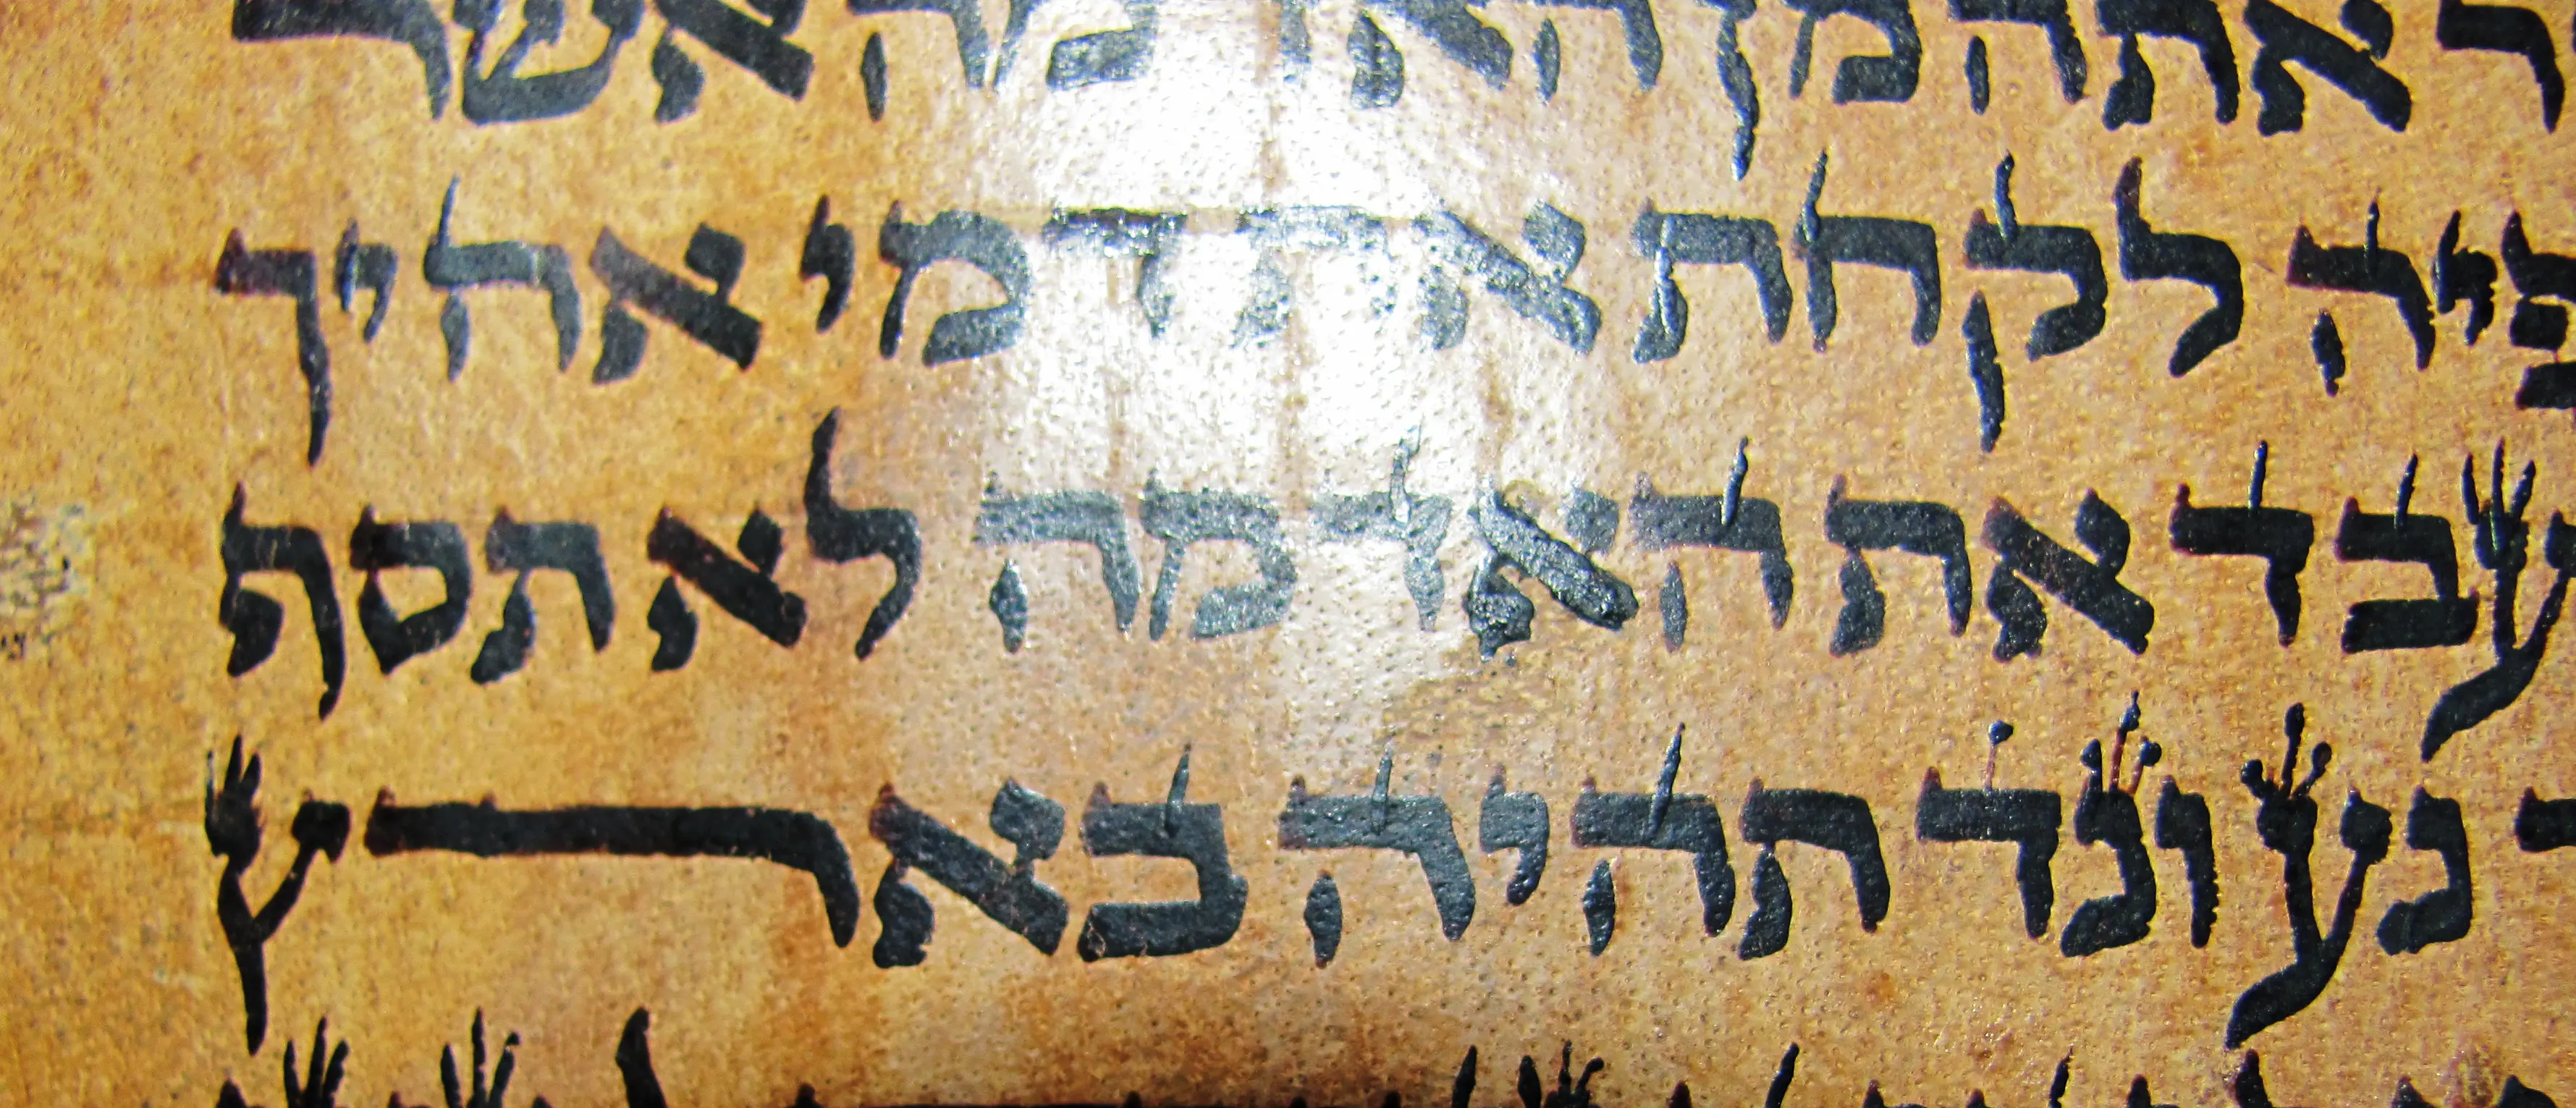 ר אתה מן האדמה אשר
פיה לקחת את דמי אחיך
עבד את האדמה לא תסף
נע ונד תהיה בארץ